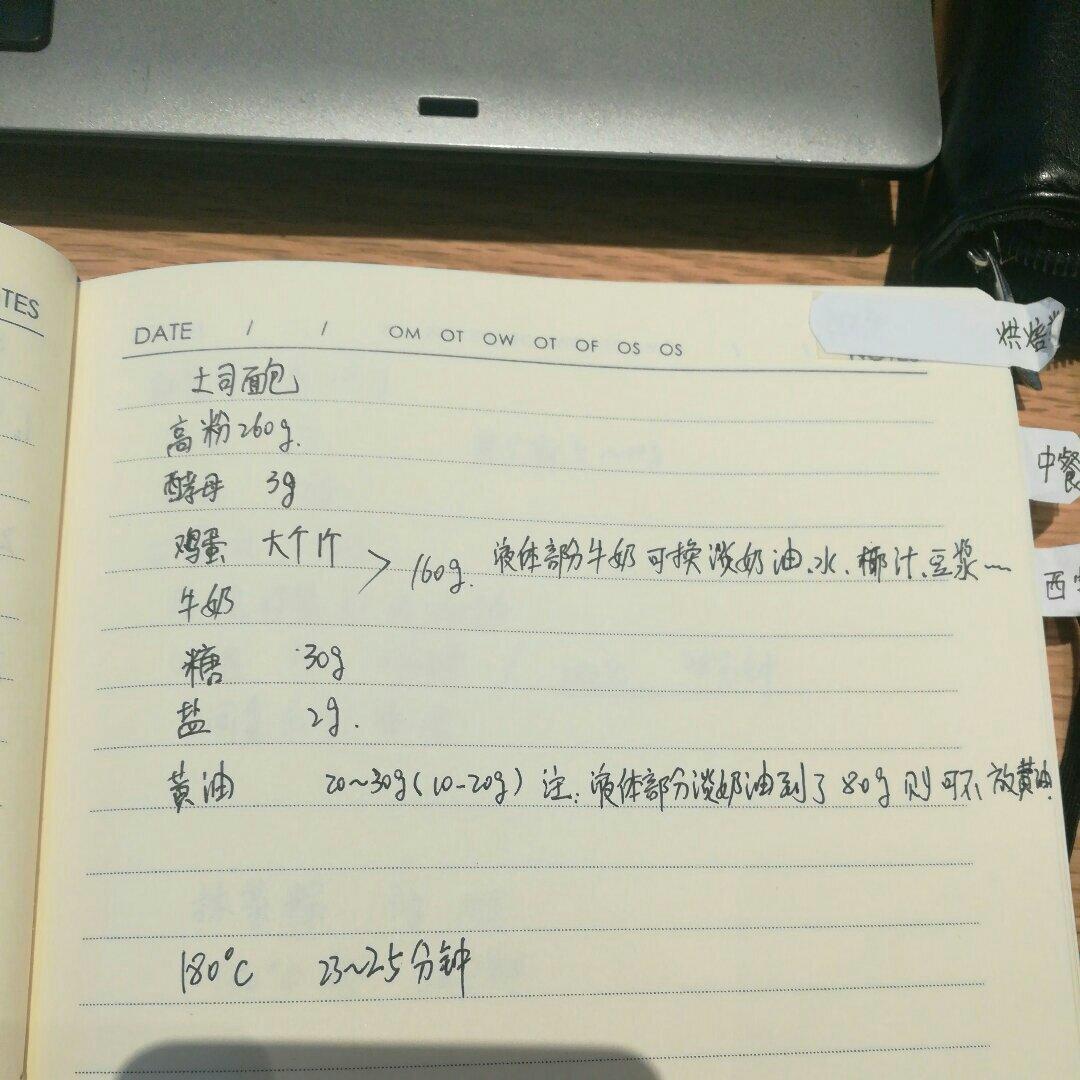 TES
DATE / / OM OT OW OT OF OS OS
烘焙
土司面包
高粉260g.
中餐
酵母 3g
鸡蛋 大个1个
>160g. 液体部分牛奶可换淡奶油、水、椰汁、豆浆~
西
牛奶
糖 30g
盐 2g.
黄油 20~30g(10-20g) 注:液体部分淡奶油到了80g则可不放黄油.
180°C 23~25分钟